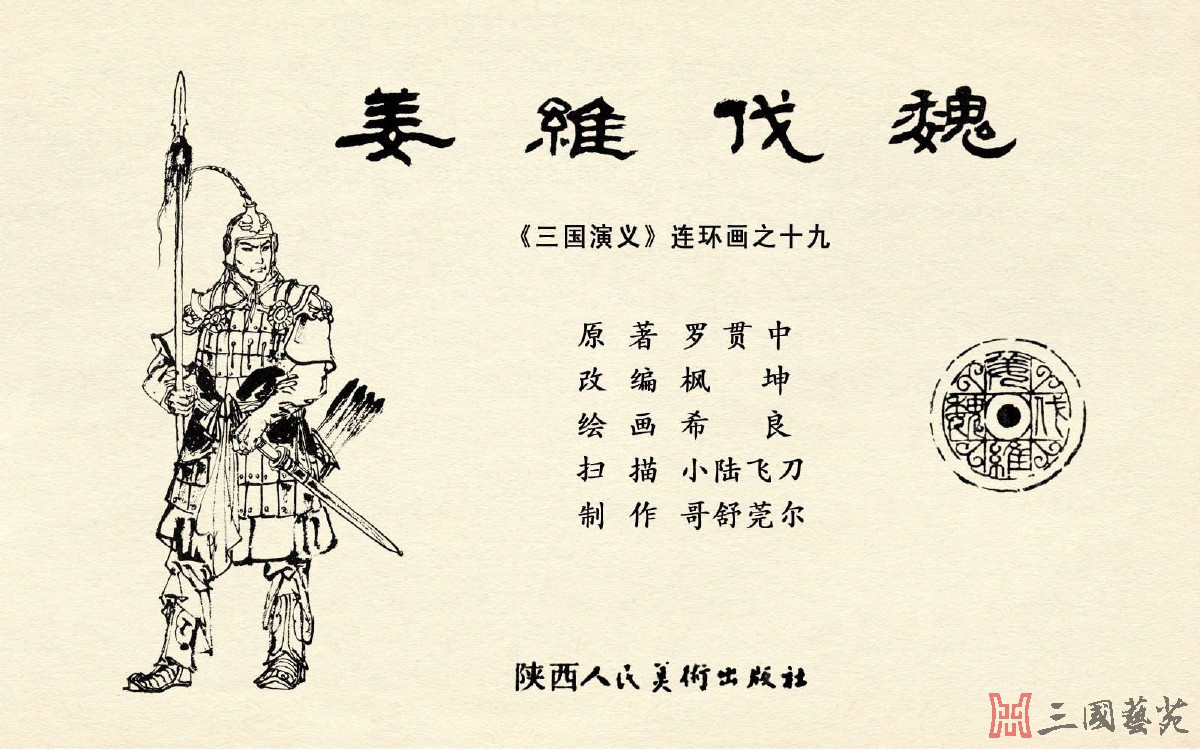 姜維伐魏
《三国演义》连环画之十九
原著 罗贯中
改编 枫坤
绘画 希良
扫描 小陆飞刀
制作 哥舒莞尔
姜維伐魏
陕西人民美術出版社
三國藝苑